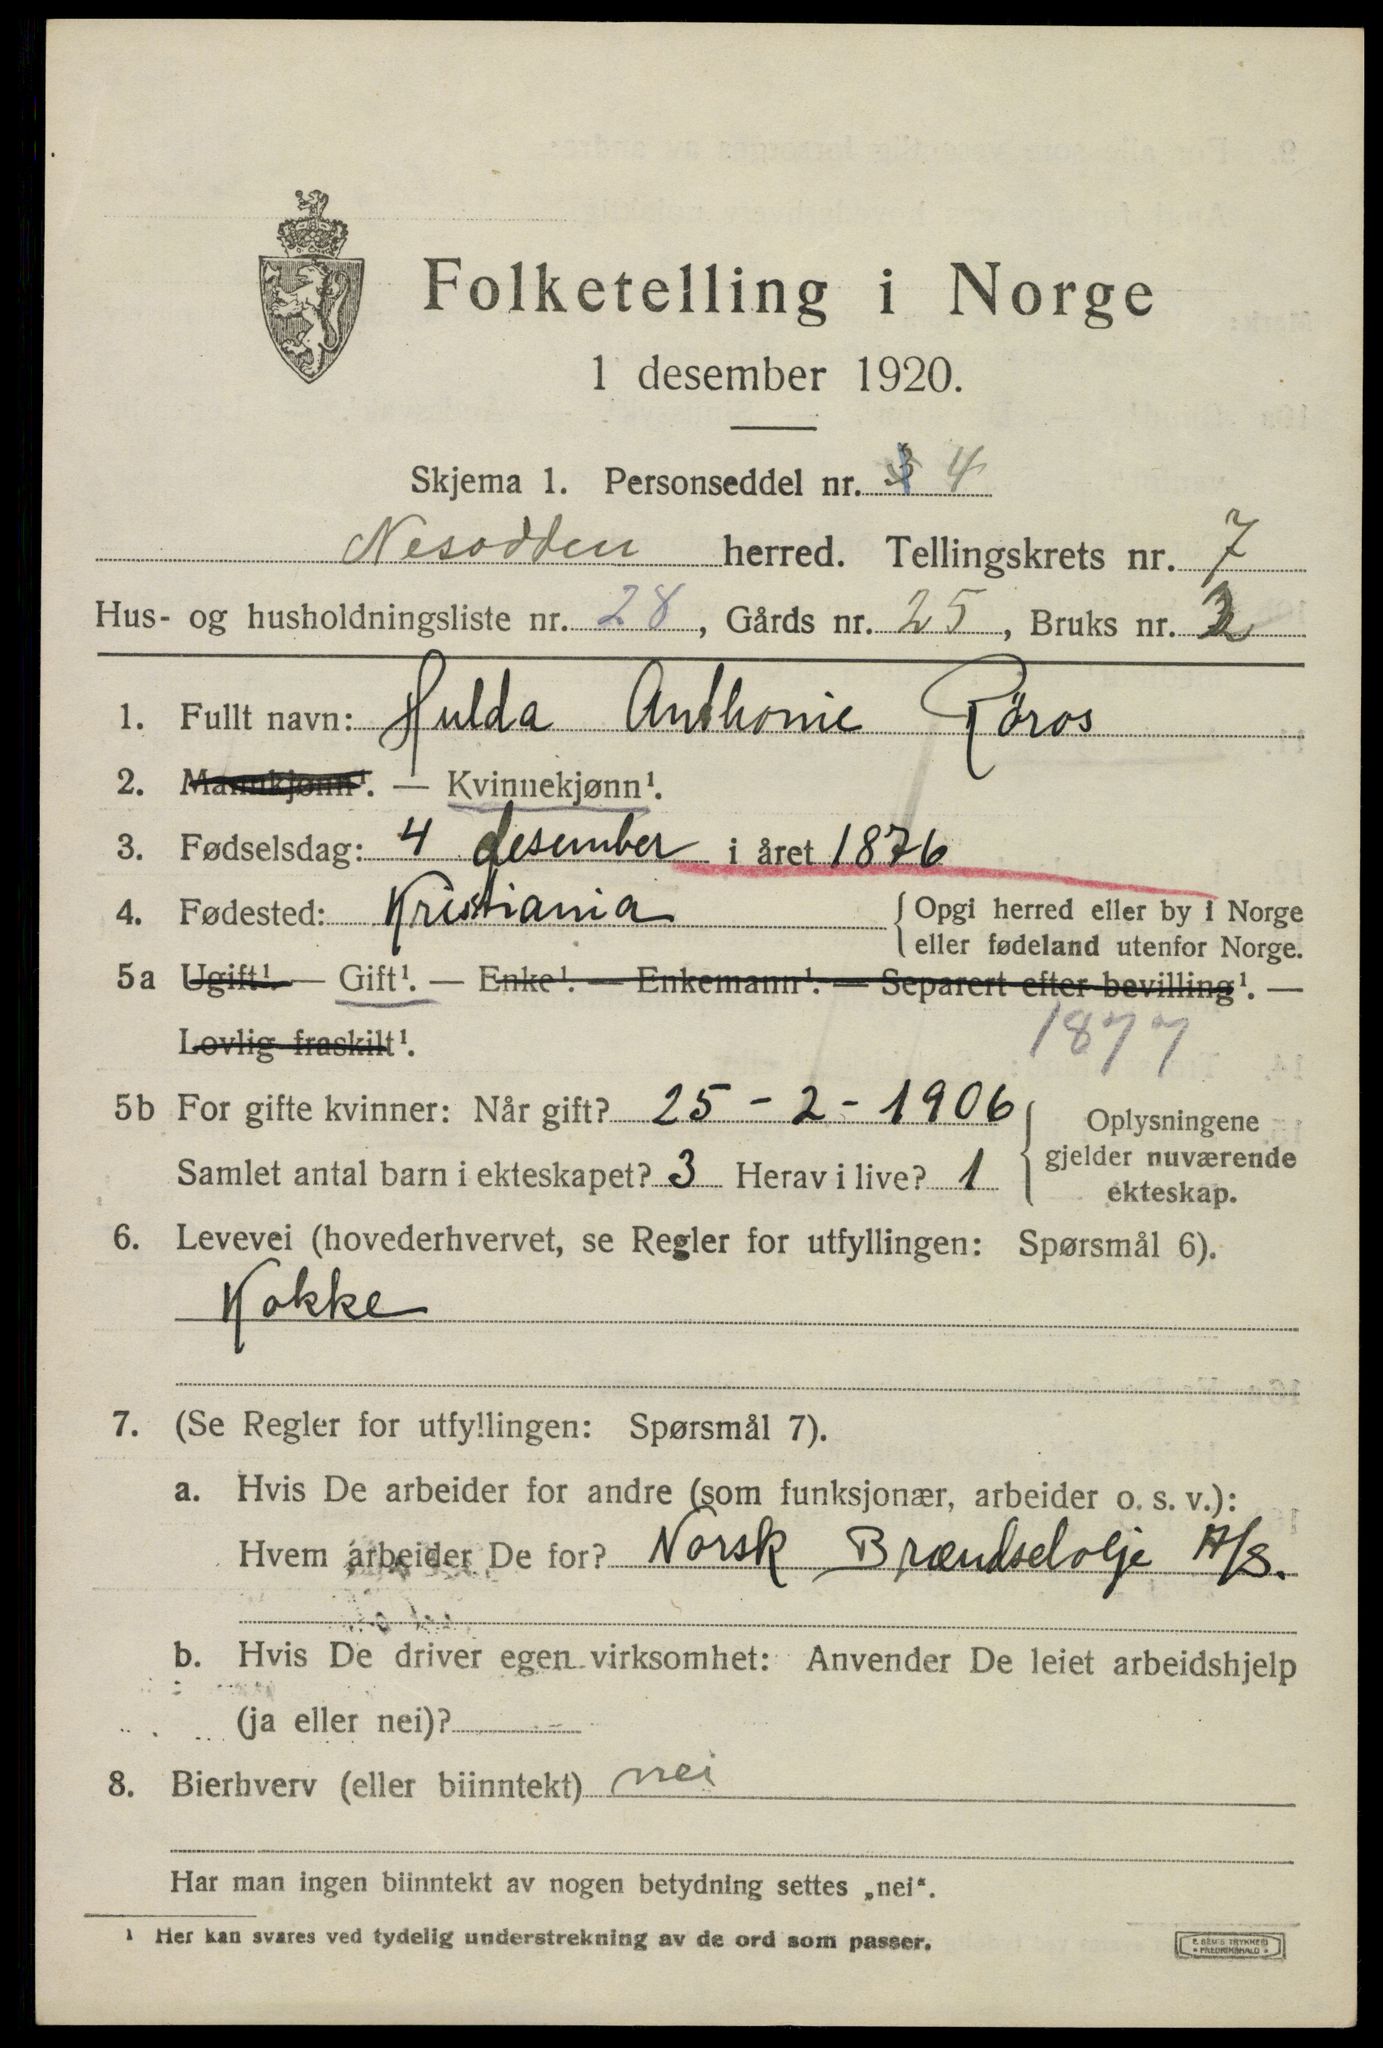 Folketelling i Norge
1 desember 1920.
Skjema 1. Personseddel nr. 4
Nesodden herred. Tellingskrets nr. 7
Hus- og husholdningsliste nr. 28, Gårds nr. 25, Bruks nr. 2
1. Fullt navn: Hulda Anthonie Røros
2. Mannkjønn¹. — Kvinnekjønn¹.
3. Fødselsdag: 4 desember i året 1876
4. Fødested: Kristiania { Opgi herred eller by i Norge
eller fødeland utenfor Norge.
5a Ugift¹. — Gift¹. — Enke¹. — Enkemann¹. — Separert efter bevilling¹. —
Lovlig fraskilt¹. 1877
5b For gifte kvinner: Når gift? 25 - 2 - 1906 { Oplysningene
gjelder nuværende
ekteskap.
Samlet antal barn i ekteskapet? 3 Herav i live? 1
6. Levevei (hovederhvervet, se Regler for utfyllingen: Spørsmål 6).
Kokke
7. (Se Regler for utfyllingen: Spørsmål 7).
a. Hvis De arbeider for andre (som funksjonær, arbeider o. s. v.):
Hvem arbeider De for? Norsk Brændselolje A/S.
b. Hvis De driver egen virksomhet: Anvender De leiet arbeidshjelp
(ja eller nei)?
8. Bierhverv (eller biinntekt) nei
Har man ingen biinntekt av nogen betydning settes „nei“.
¹ Her kan svares ved tydelig understrekning av de ord som passer.